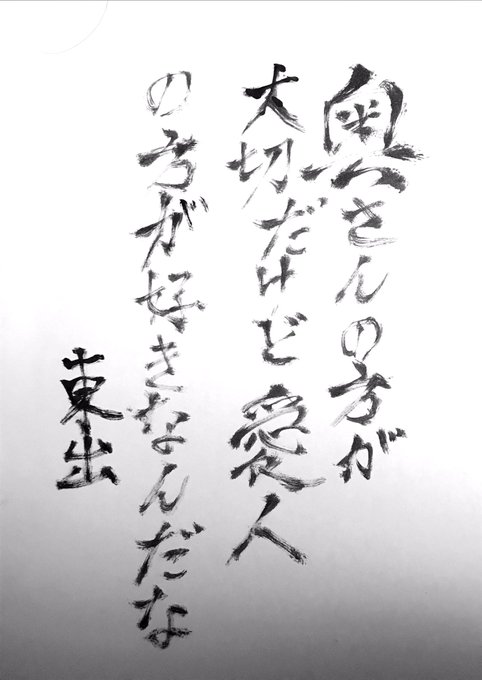 奥さんの方が
大切だけど愛人
の方が好きなんだな
東出